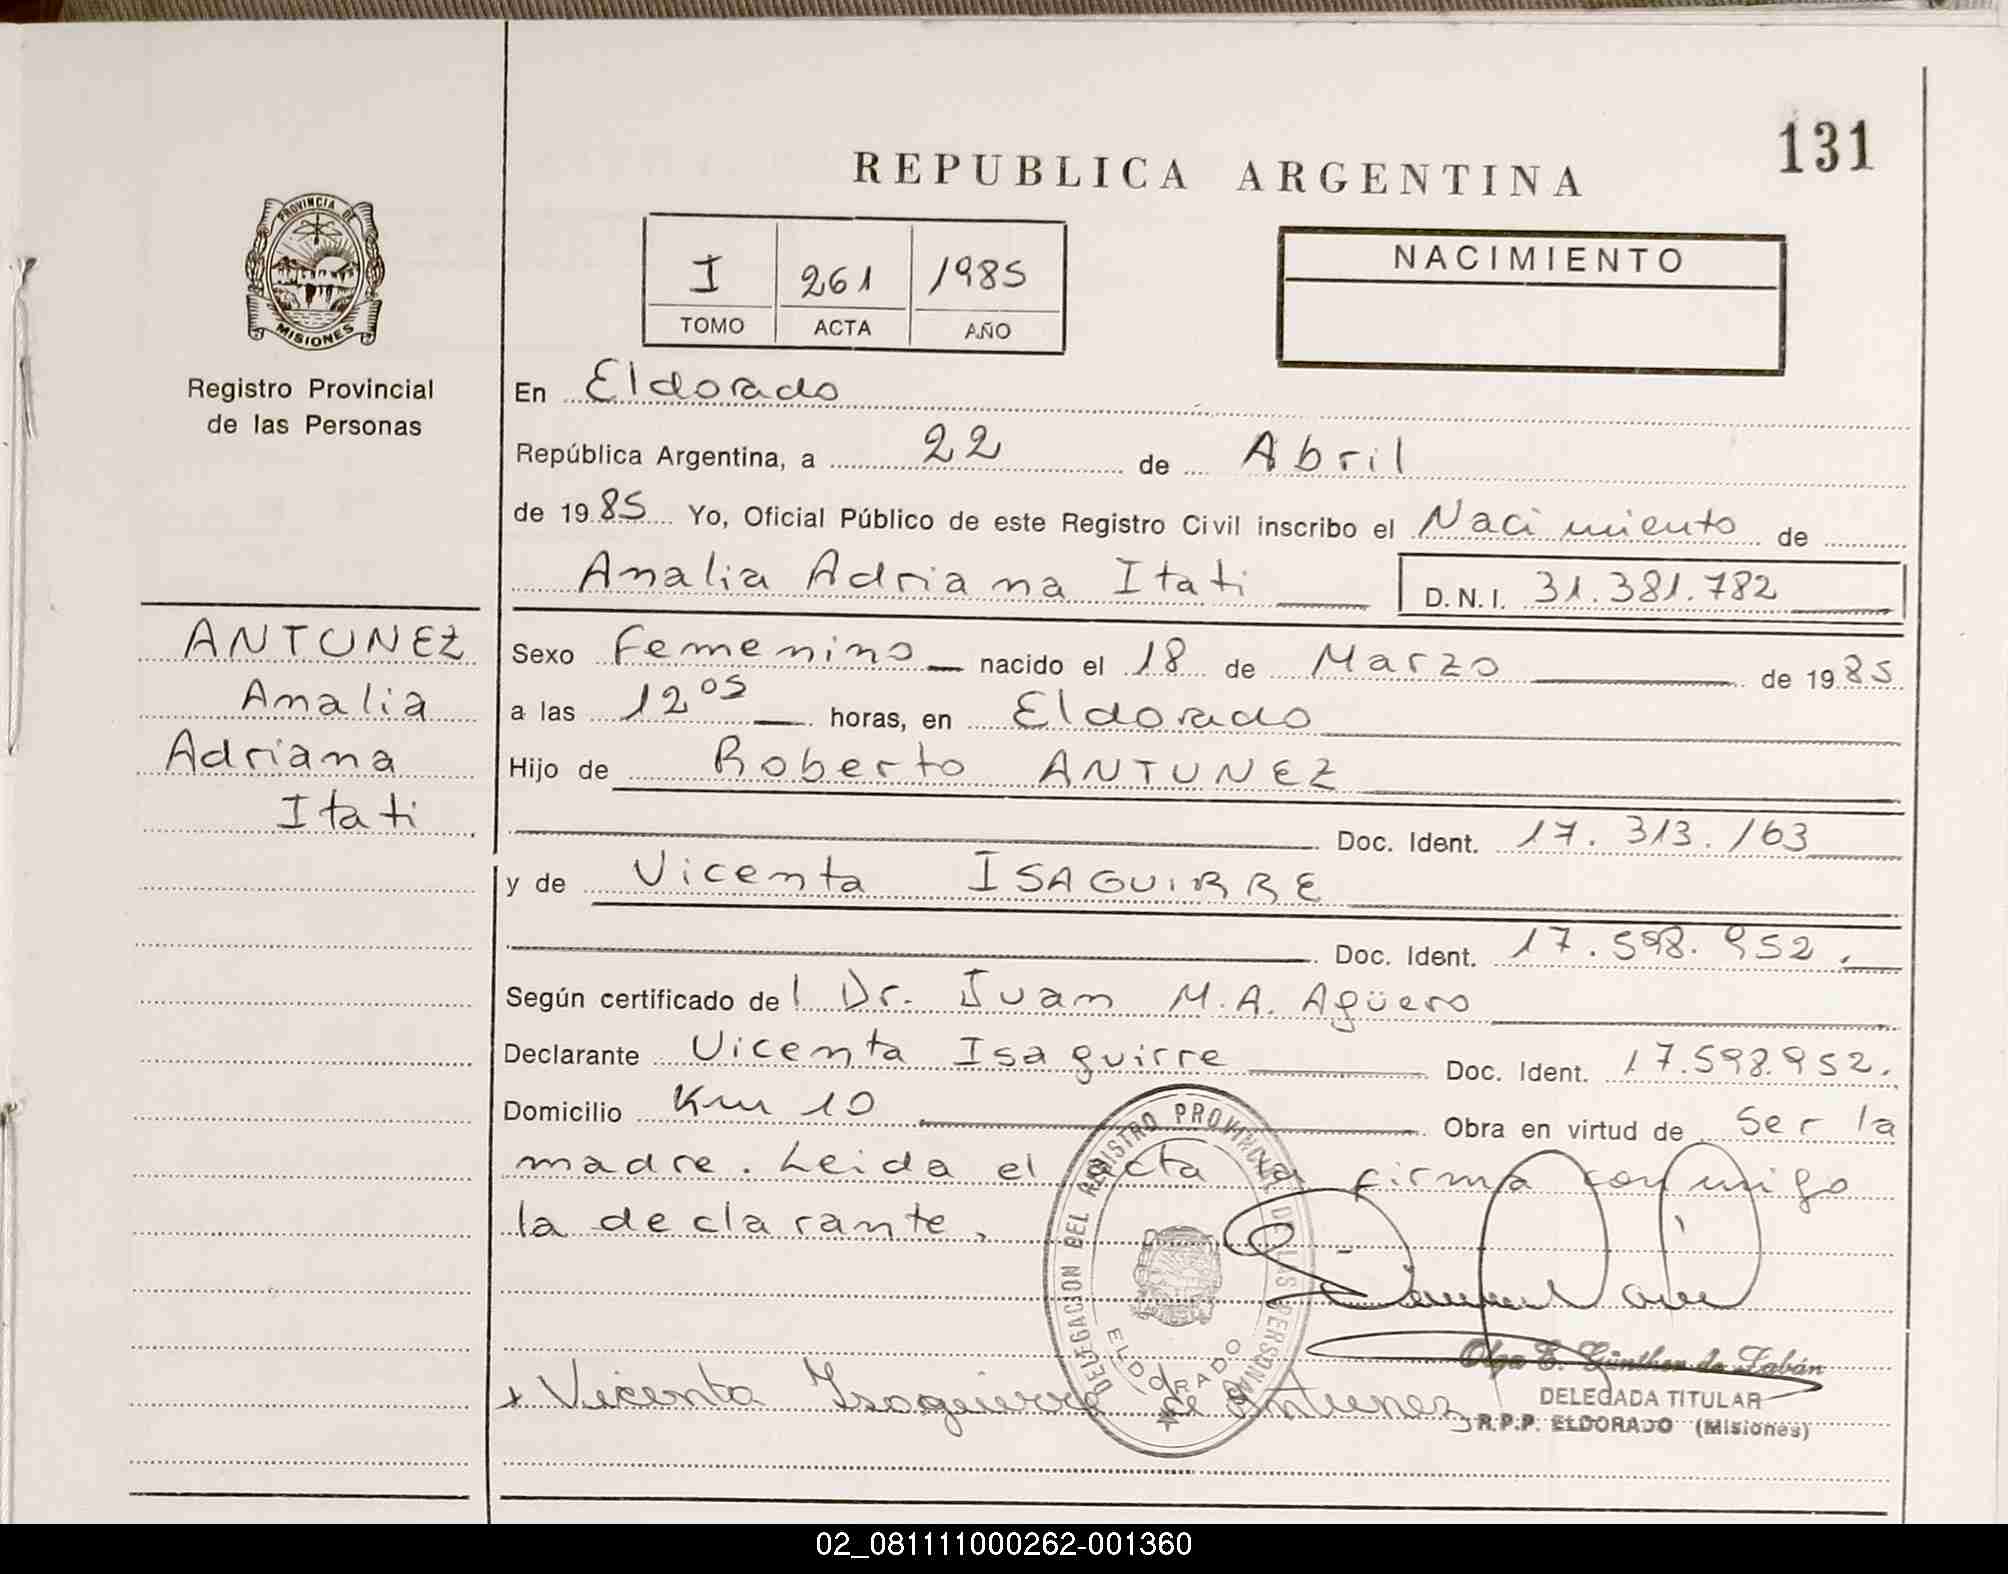 131
REPUBLICA ARGENTINA
PROVINCIA DE
MISIONES
Registro Provincial
de las Personas
I 261 1985
TOMO ACTA AÑO
NACIMIENTO
En Eldorado
República Argentina, a 22 de Abril
de 1985 Yo, Oficial Público de este Registro Civil inscribo el Nacimiento de
Analia Adriana Itati D.N.I. 31.381.782
ANTUNEZ
Analia
Adriana
Itati
Sexo Femenino nacido el 18 de Marzo de 1985
a las 12 05 horas, en Eldorado
Hijo de Roberto ANTUNEZ
Doc. Ident. 17.313.163
y de Vicenta ISAGUIRRE
Doc. Ident. 17.598.952.
Según certificado del Dr. Juan M.A. Agüero
Declarante Vicenta Isaguirre Doc. Ident. 17.598.952.
Domicilio Km 10 Obra en virtud de ser la
madre. Leida el acta la firma conmigo
la declarante.
DELEGACION DEL REGISTRO PROVINCIAL DE LAS PERSONAS
ELDORADO
Olga E. Günther de Labán
DELEGADA TITULAR
R.P.P. ELDORADO (Misiones)
x Vicenta Isaguirre de Antunez
02_081111000262-001360